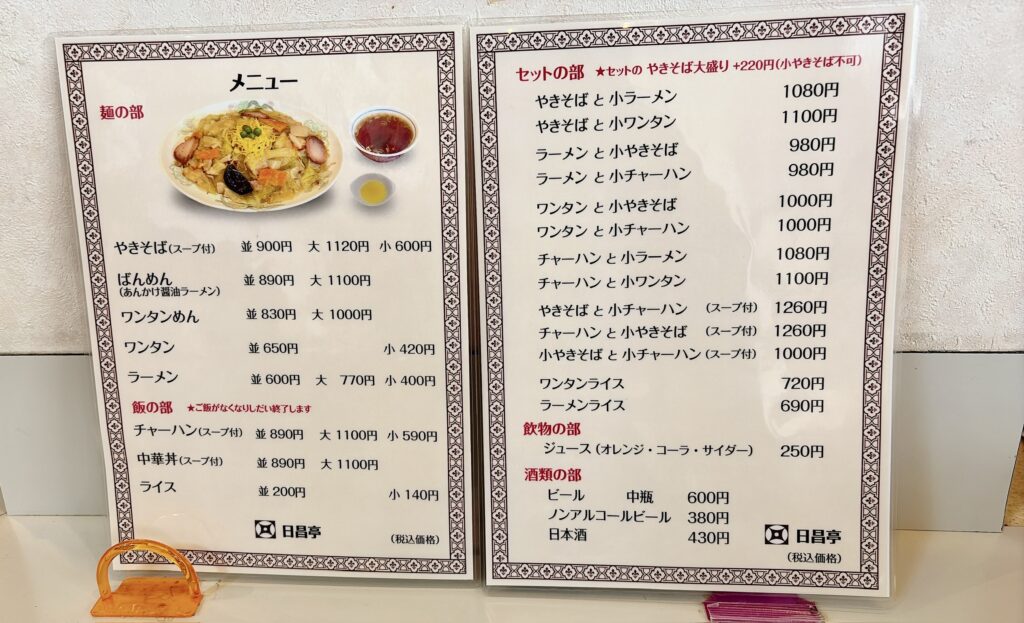 メニュー
麺の部
やきそば(スープ付) 並 900円 大 1120円 小 600円
ばんめん 並 890円 大 1100円
(あんかけ醤油ラーメン)
ワンタンめん 並 830円 大 1000円
ワンタン 並 650円 小 420円
ラーメン 並 600円 大 770円 小 400円
飯の部 ★ご飯がなくなりしだい終了します
チャーハン(スープ付) 並 890円 大 1100円 小 590円
中華丼(スープ付) 並 890円 大 1100円
ライス 並 200円 小 140円
日昌亭 (税込価格)
セットの部 ★セットの やきそば大盛り +220円(小やきそば不可)
やきそば と 小ラーメン 1080円
やきそば と 小ワンタン 1100円
ラーメン と 小やきそば 980円
ラーメン と 小チャーハン 980円
ワンタン と 小やきそば 1000円
ワンタン と 小チャーハン 1000円
チャーハン と 小ラーメン 1080円
チャーハン と 小ワンタン 1100円
やきそば と 小チャーハン (スープ付) 1260円
チャーハン と 小やきそば (スープ付) 1260円
小やきそば と 小チャーハン (スープ付) 1000円
ワンタンライス 720円
ラーメンライス 690円
飲物の部
ジュース (オレンジ・コーラ・サイダー) 250円
酒類の部
ビール 中瓶 600円
ノンアルコールビール 380円
日本酒 430円
日昌亭
(税込価格)